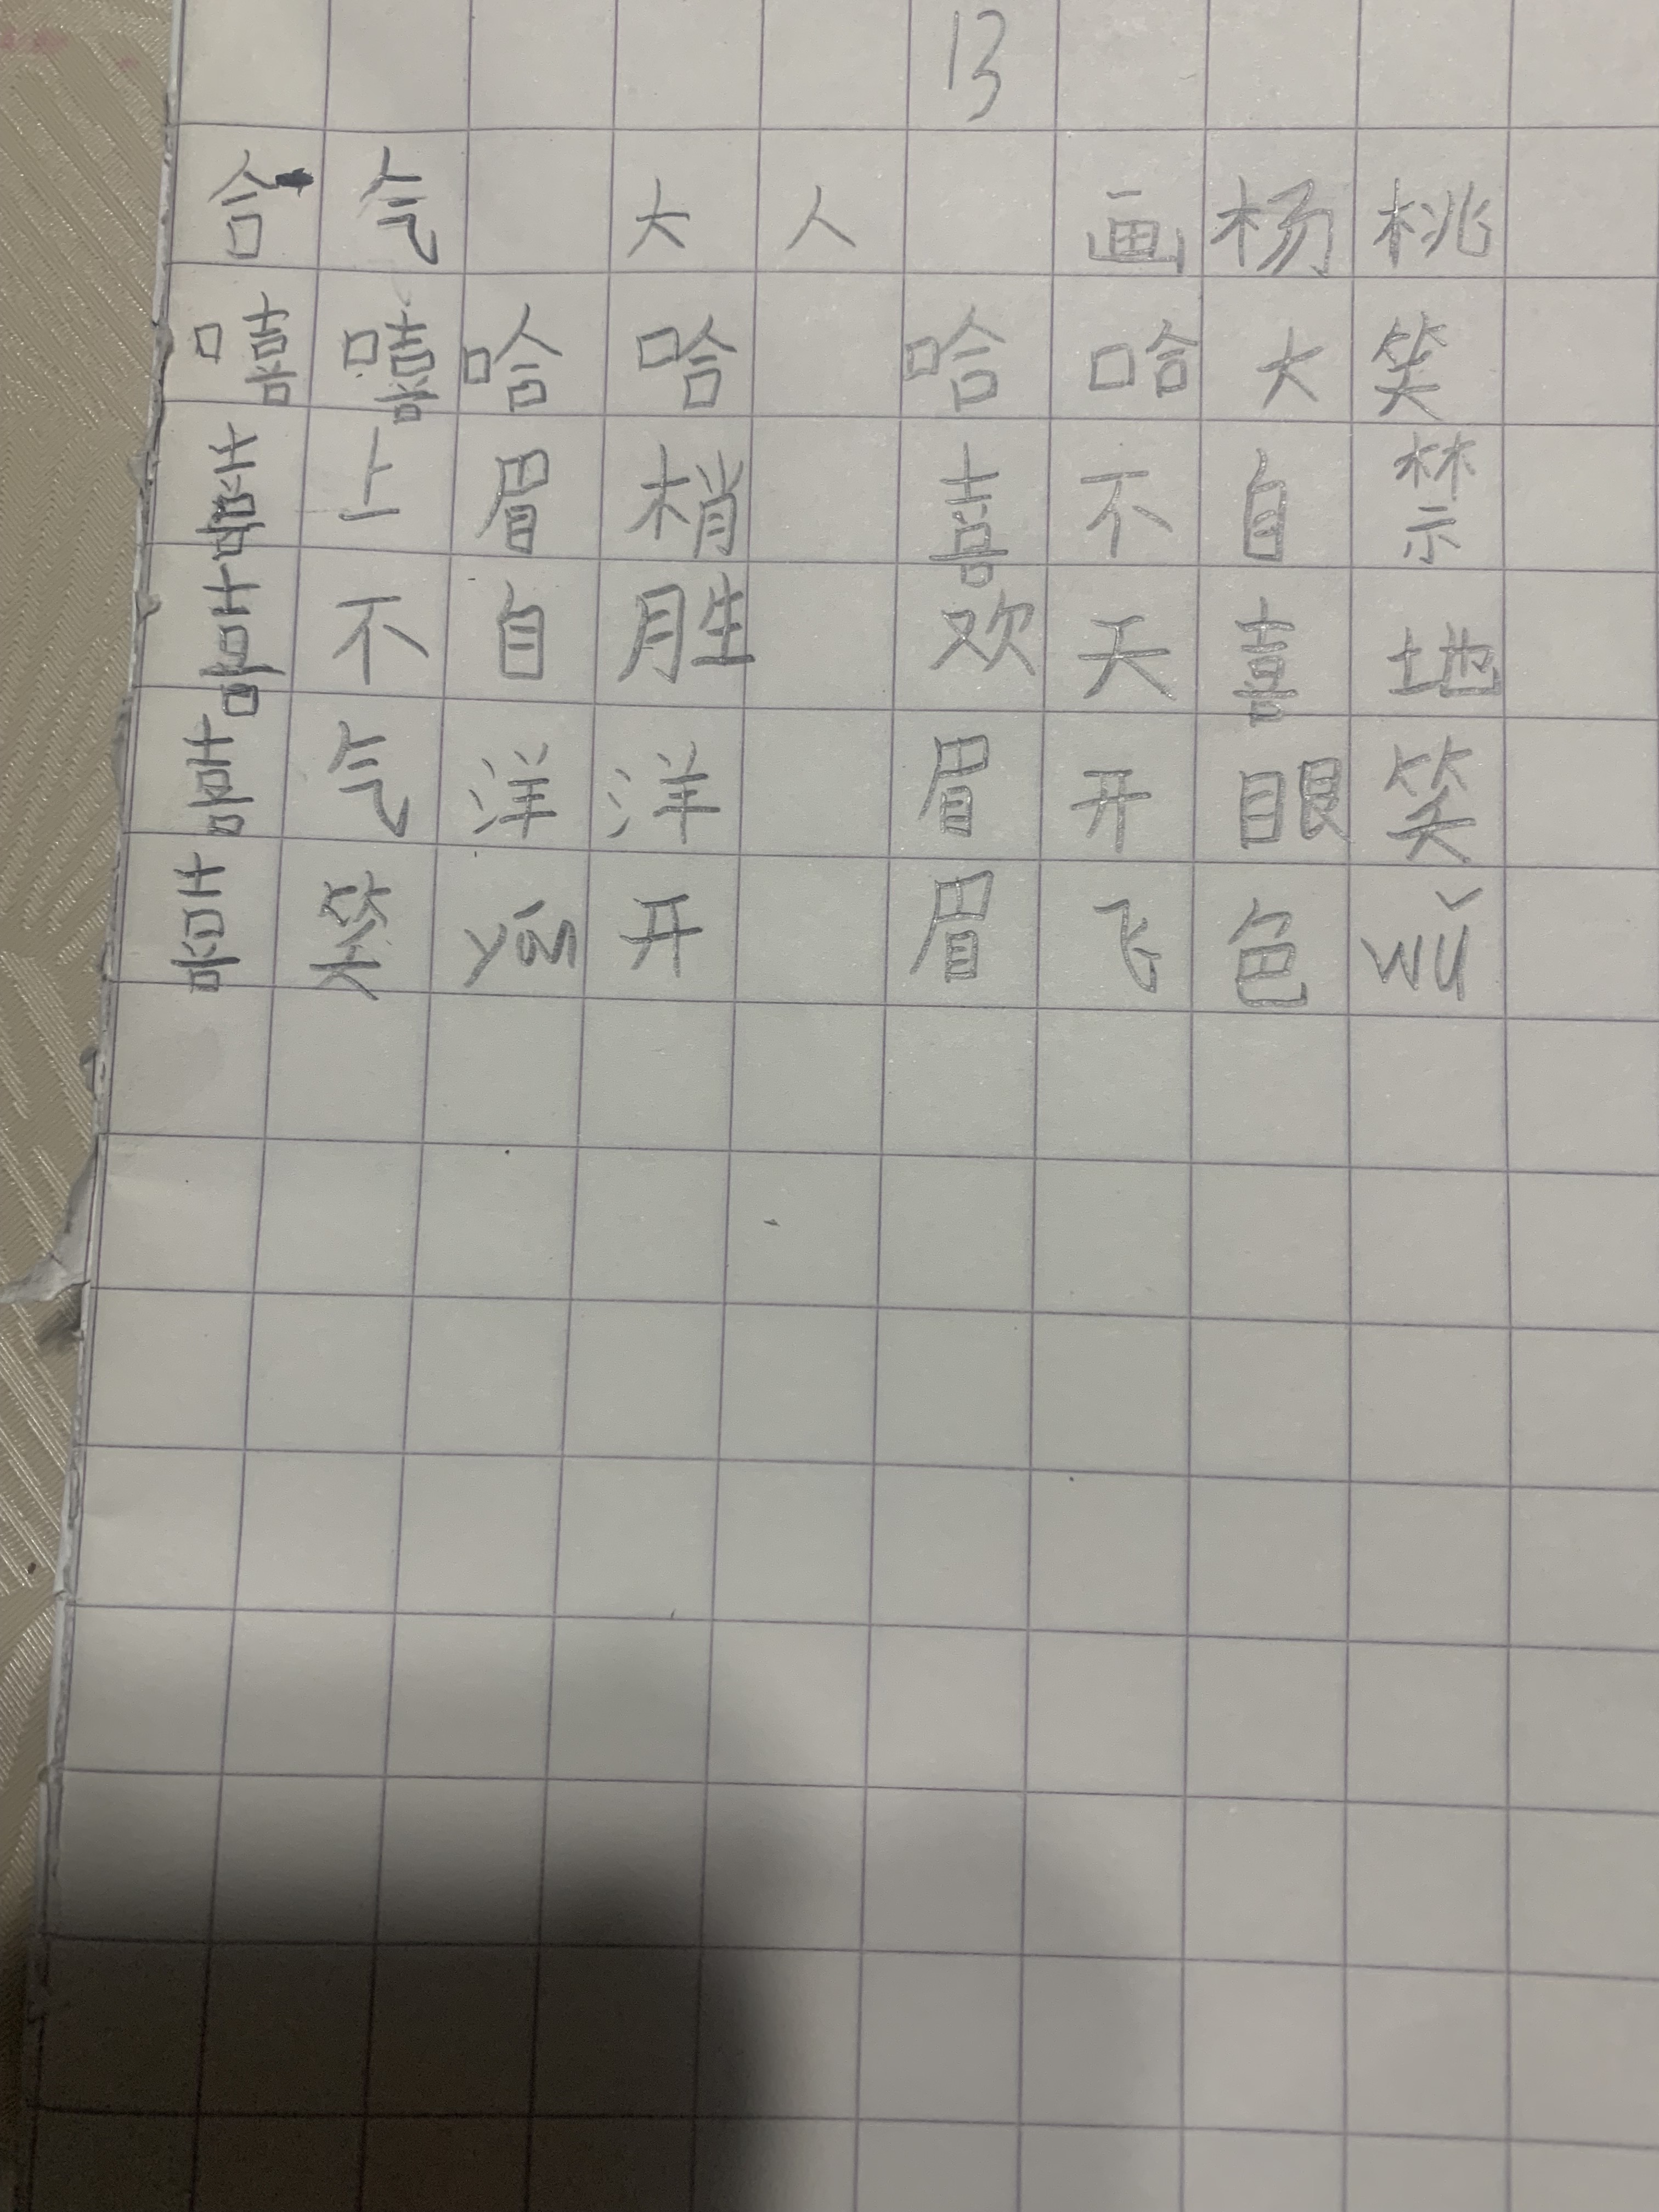 13
合气 大人 画杨桃
嘻嘻哈哈 哈哈大笑
喜上眉梢 喜不自禁
喜不自胜 欢天喜地
喜气洋洋 眉开眼笑
喜笑yán开 眉飞色wǔ